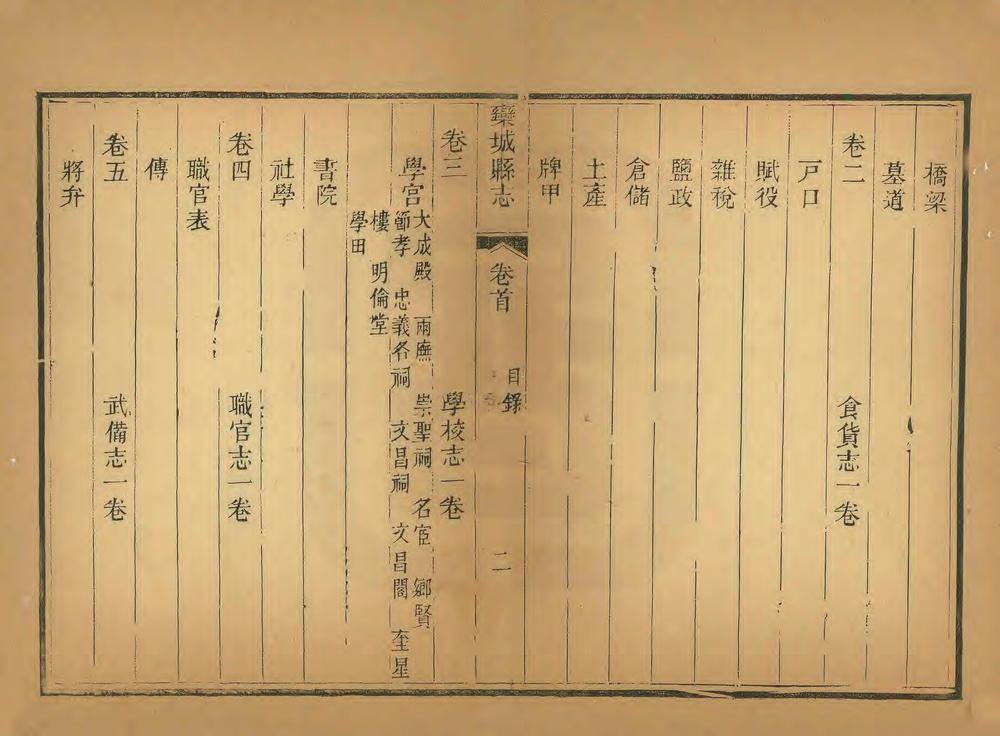 橋梁
墓道
卷二 食貨志一卷
戸口
賦役
雜稅
鹽政
倉儲
土產
牌甲
欒城縣志 卷首 目錄 二
卷三 學校志一卷
學宮 大成殿 兩廡 崇聖祠 名宦 鄉賢
節孝 忠義各祠 文昌祠 文昌閣 奎星
樓 明倫堂
學田
書院
社學
卷四 職官志一卷
職官表
傳
卷五 武備志一卷
將弁